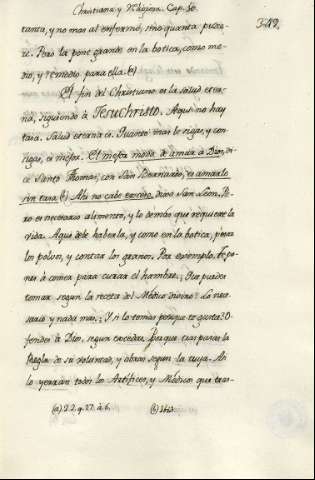 Christiano, y Religioso. Cap. 50.
349.
tanta, y no mas al enfermo, sino quanta pueda
Pero la pone grande en la botica, como me-
dio, y remedio para ella. (a)
El fin del Christiano es la salud eter-
na, siguiendo à Jesuchristo. Aqui no hay
tasa. Salud eterna es. Quanto mas le sigas, y con-
sigas, es mejor. El mejor modo de amar à Dios, di-
ce Santo Thomas, con San Bernardo, es amarlo
sin tasa. (b) Ahi no cabe exceso, dixo San Leon. Pe-
ro es necesario alimento, y lo demàs que requiere la
vida. Aqui debe haberla, y como en la botica, pesar
los polvos, y contar los granos. Por exemplo. Te po-
nes à comer para curar el hambre. ¿Que puedes
tomar segun la receta del Médico divino? Lo nece-
sario y nada mas. ¿Y si lo tomas porque te gusta? O-
fendes à Dios, segun excedas. Porque traspasas la
Regla de su voluntad, y obras segun la tuya. Asi
lo yerran todos los Artifices, y Médicos que tras-
(a) 2. 2. q. 27. à. 6. (b) Ibid.